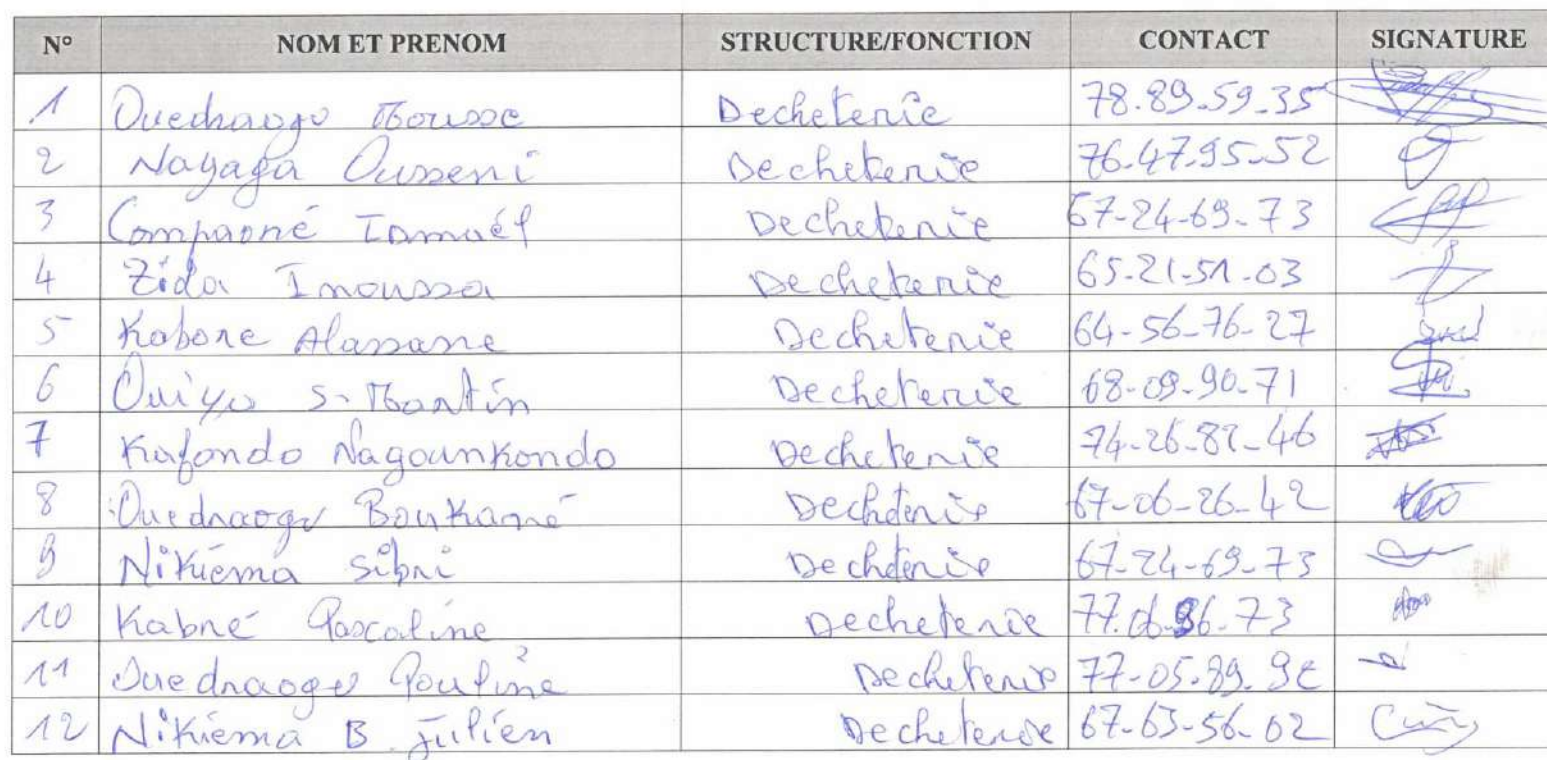 N° NOM ET PRENOM STRUCTURE/FONCTION CONTACT SIGNATURE
1 Ouedraogo Mousse Decheterie 78.89.59.35
2 Nayaga Ousseni Decheterie 76.47.95.52
3 Compaoné Ismaël Decheterie 67-24-69-73
4 Zida Inoussa Decheterie 65-21-51-03
5 Kabore Alassane Decheterie 64-56-76-27
6 Ouiya S. Martin Decheterie 68-09-90-71
7 Kafondo Nagounkondo Decheterie 74-26-82-46
8 Ouedraogo Boukaré Decheterie 67-06-26-42
9 Nikiéma Sibri Decheterie 67-24-69-73
10 Kabré Pascaline Decheterie 77.06.96-73
11 Ouedraogo Pouline Decheterie 77-05-89.
12 Nikiéma B Julien Decheterie 67-63-56-02